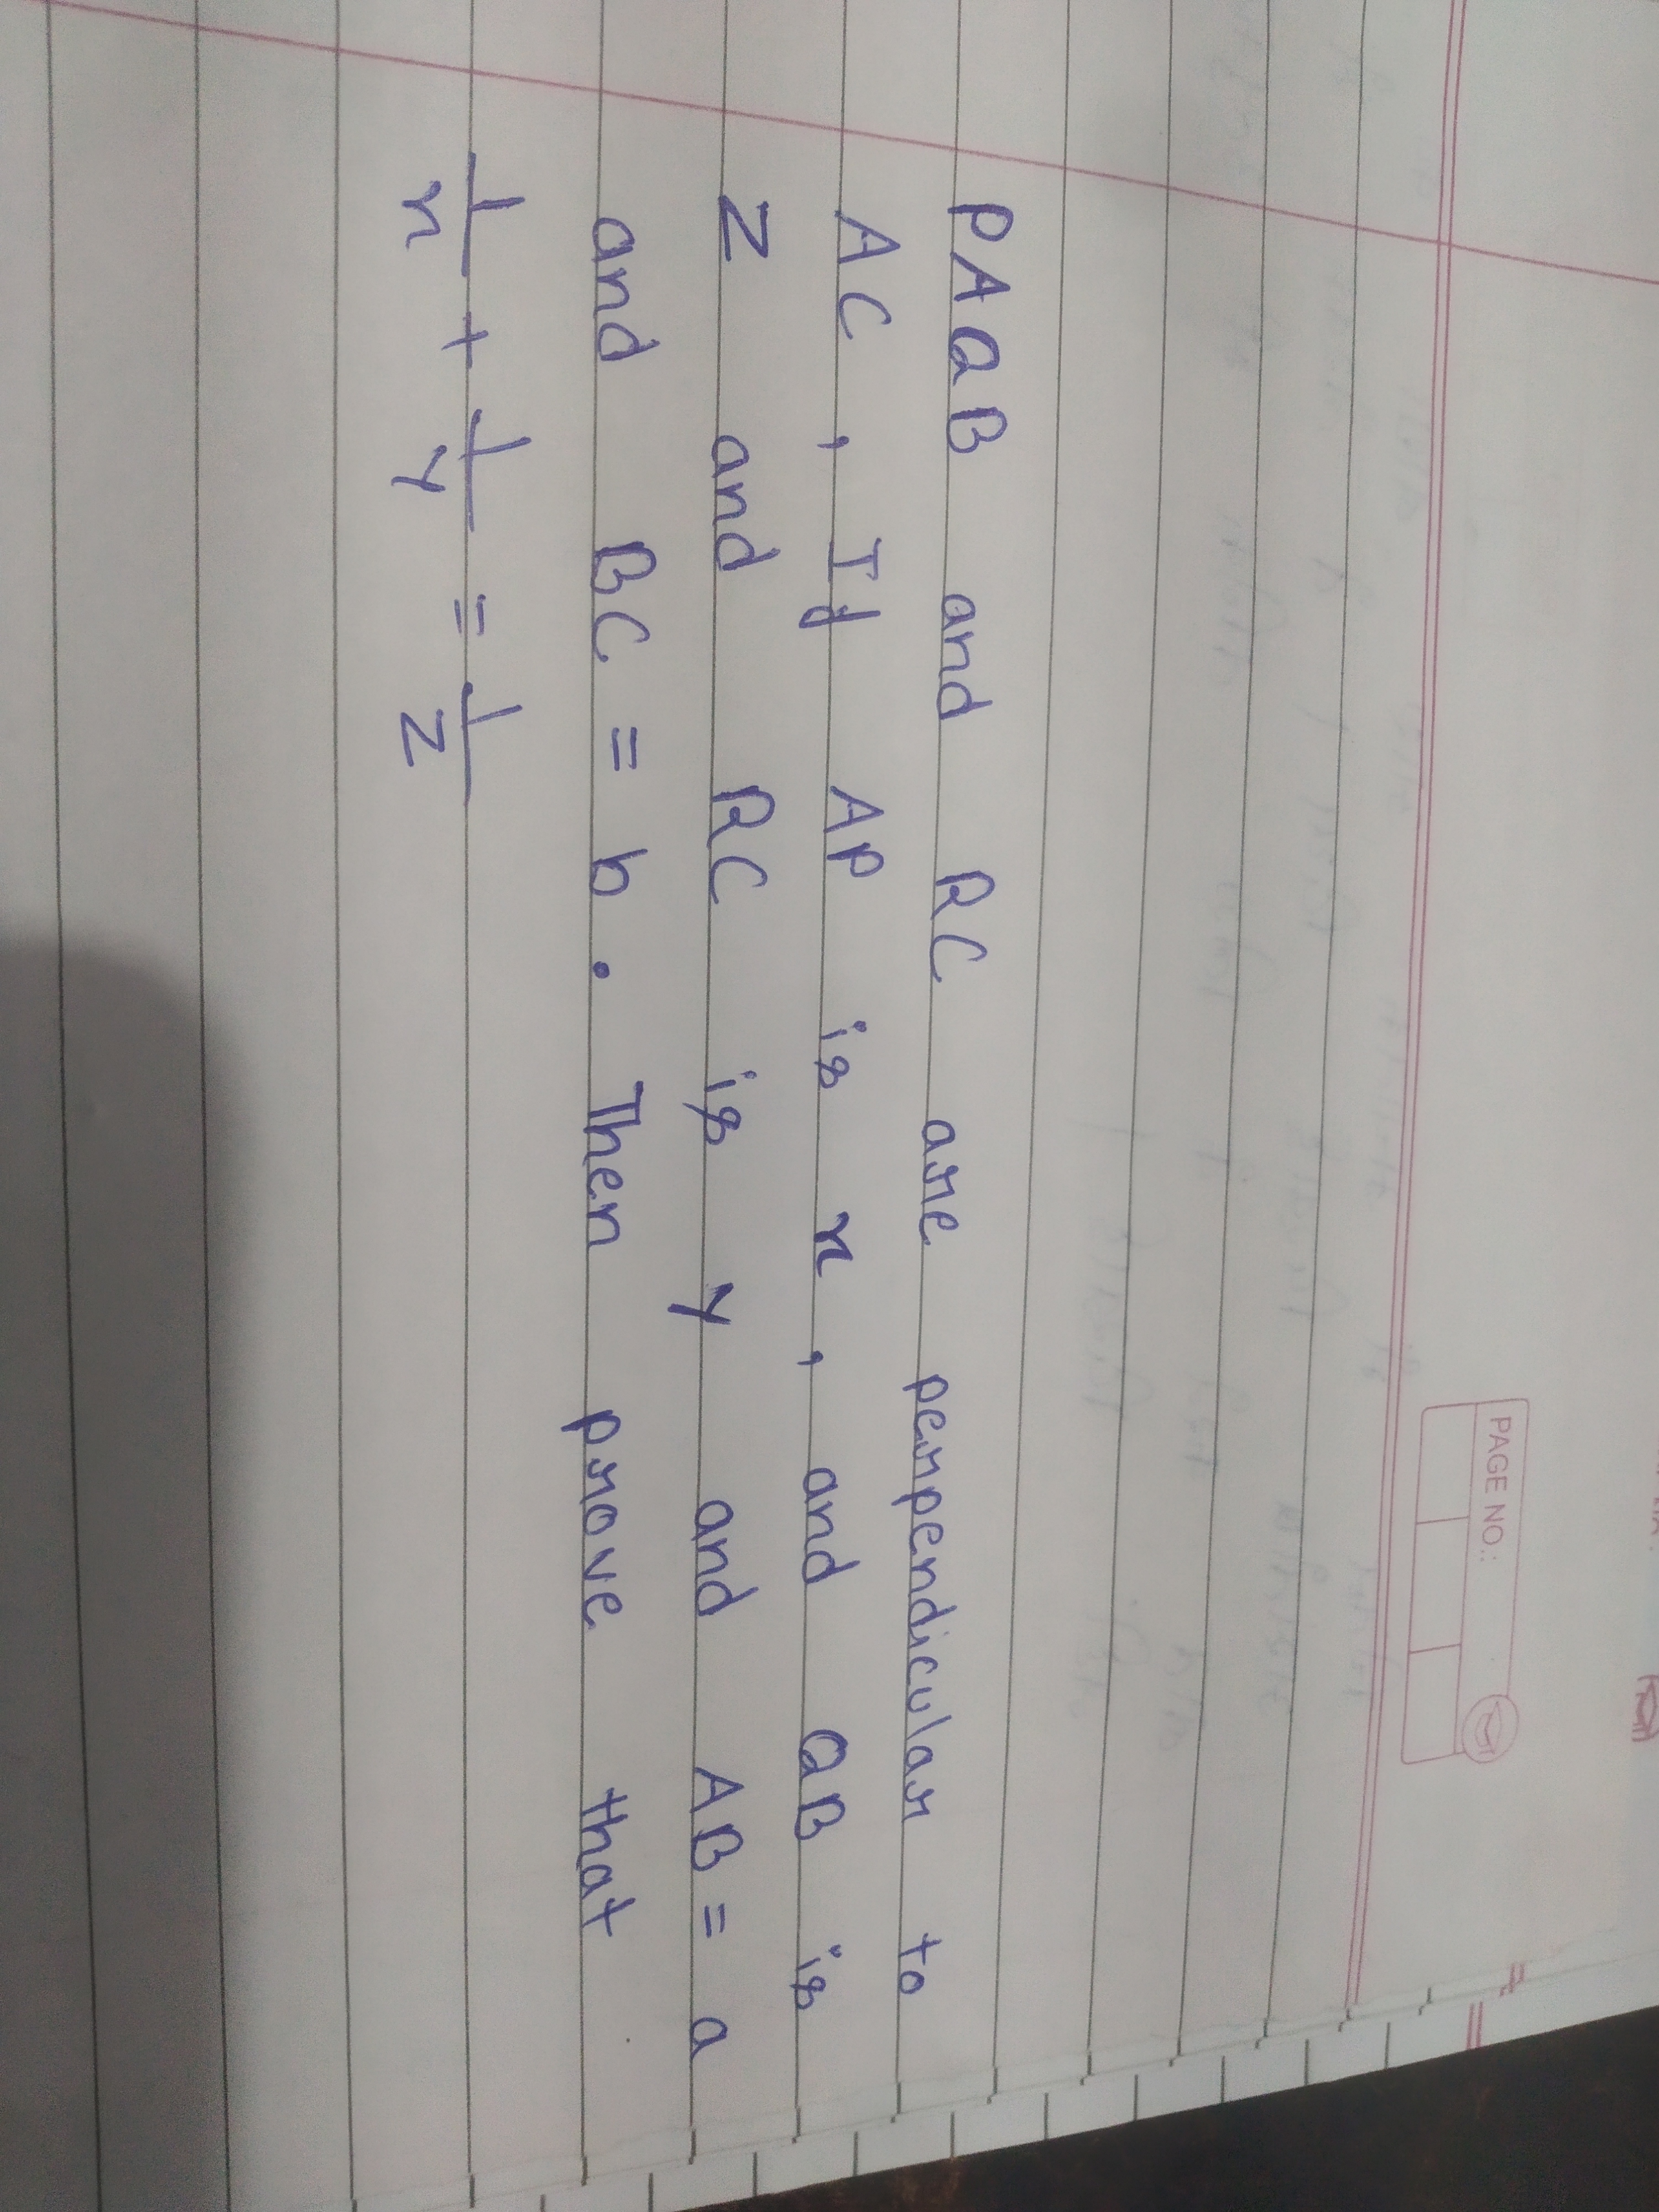 PAGE NO.:
PAQB and RC are perpendicular to
AC, If AP is x, and QB is
Z and RC is y and AB = a
and BC = b. Then prove that
1/x + 1/y = 1/Z